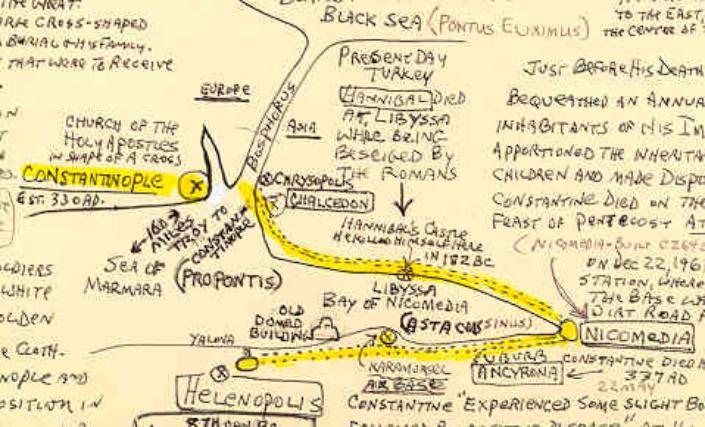 BLACK SEA (PONTUS EUXIMUS)
TO THE EAST,
THE CENTER OF
ARK CROSS-SHAPED
BURIAL OF HIS FAMILY.
THAT WERE TO RECEIVE
EUROPE
ASIA
BOSPHORUS
PRESENT DAY
TURKEY
HANNIBAL DIED
AT LIBYSSA
WHILE BEING
BESEIGED BY
THE ROMANS
JUST BEFORE HIS DEATH
BEQUEATHED AN ANNUA
INHABITANTS OF HIS IM
APPORTIONED THE INHERITA
CHILDREN AND MADE DISPO
CONSTANTINE DIED ON THE
FEAST OF PENTECOST AT
CHURCH OF THE
HOLY APOSTLES
IN SHAPE OF A CROSS
CONSTANTINOPLE X
EST. 330 AD.
CHRYSOPOLIS
CHALCEDON
160
MILES
TROY TO
CONSTAN
TINOPLE
SEA OF
MARMARA
(PROPONTIS)
HANNIBAL'S CASTLE
HE KILLED HIMSELF HERE
IN 182 BC
LIBYSSA
BAY OF NICOMEDIA
(ASTACUSSINUS)
(NICOMEDIA-BUILT
ON DEC 22, 196
STATION, WHERE
THE BASE WA
DIRT ROAD
NICOMEDIA
OLDIERS
WHITE
OLDEN
E CLOTH.
NOPLE AND
OSITION IN
OLD
DOMED
BUILDING
YALOVA
X
HELENOPOLIS
KARAMURSEL
AIR BASE
SUBURB
ANCYRONA
CONSTANTINE DIED A
337 AD
22 MAY
CONSTANTINE "EXPERIENCED SOME SLIGHT BO